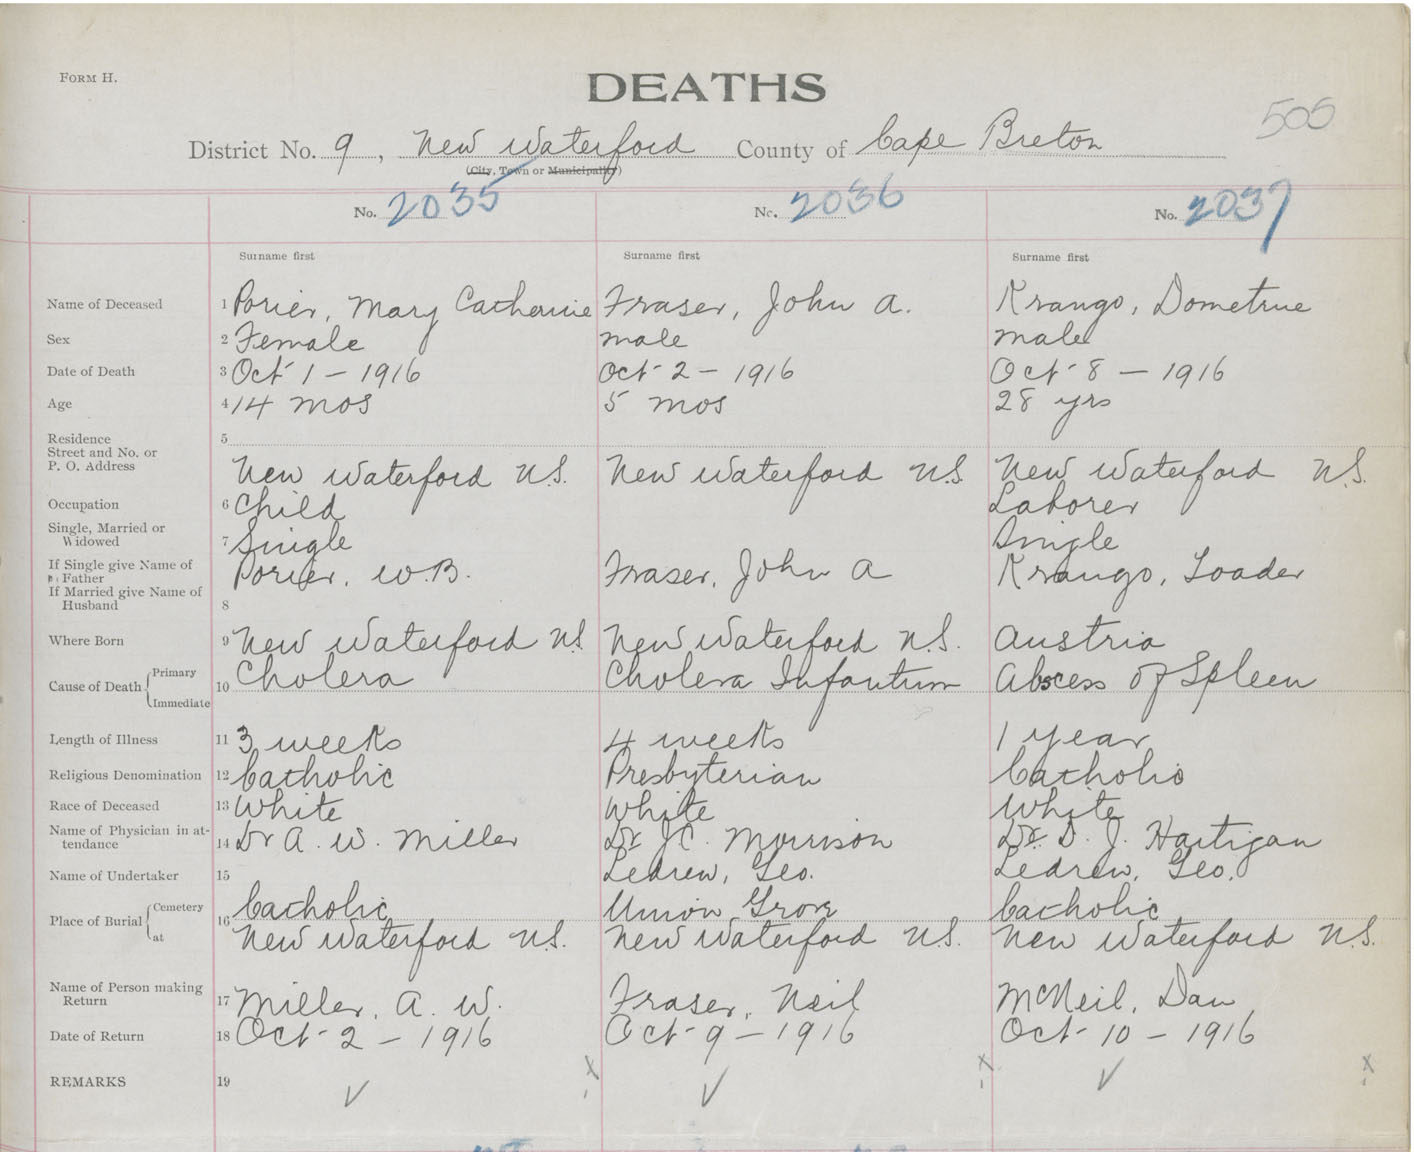 FORM H.
DEATHS
505
District No. 9, New Waterford County of Cape Breton
(City, Town or Municipality)
No. 2035 No. 2036 No. 2037
Surname first Surname first Surname first
Name of Deceased 1 Porier, Mary Catherine Fraser, John A. Krango, Dometrue
Sex 2 Female male male
Date of Death 3 Oct-1-1916 Oct-2-1916 Oct-8-1916
Age 4 14 mos 5 mos 28 yrs
Residence 5
Street and No. or
P. O. Address New Waterford N.S. New Waterford N.S. New Waterford N.S.
Occupation 6 Child Laborer
Single, Married or
Widowed 7 Single Single
If Single give Name of
Father Porier, W.B. Fraser, John A Krango, Loader
If Married give Name of
Husband 8
Where Born 9 New Waterford NS New Waterford N.S. Austria
Cause of Death Primary 10 Cholera Cholera Infantum Abscess of Spleen
Immediate
Length of Illness 11 3 weeks 4 weeks 1 year
Religious Denomination 12 Catholic Presbyterian Catholic
Race of Deceased 13 White White White
Name of Physician in at-
tendance 14 Dr A. W. Miller Dr J.C. Morrison Dr. D. J. Hartigan
Name of Undertaker 15 Ledrew, Geo. Ledrew, Geo.
Place of Burial Cemetery 16 Catholic Union Grove Catholic
at New Waterford N.S. New Waterford N.S. New Waterford N.S.
Name of Person making
Return 17 Miller, A. W. Fraser, Neil McNeil, Dan
Date of Return 18 Oct-2-1916 Oct-9-1916 Oct-10-1916
REMARKS 19